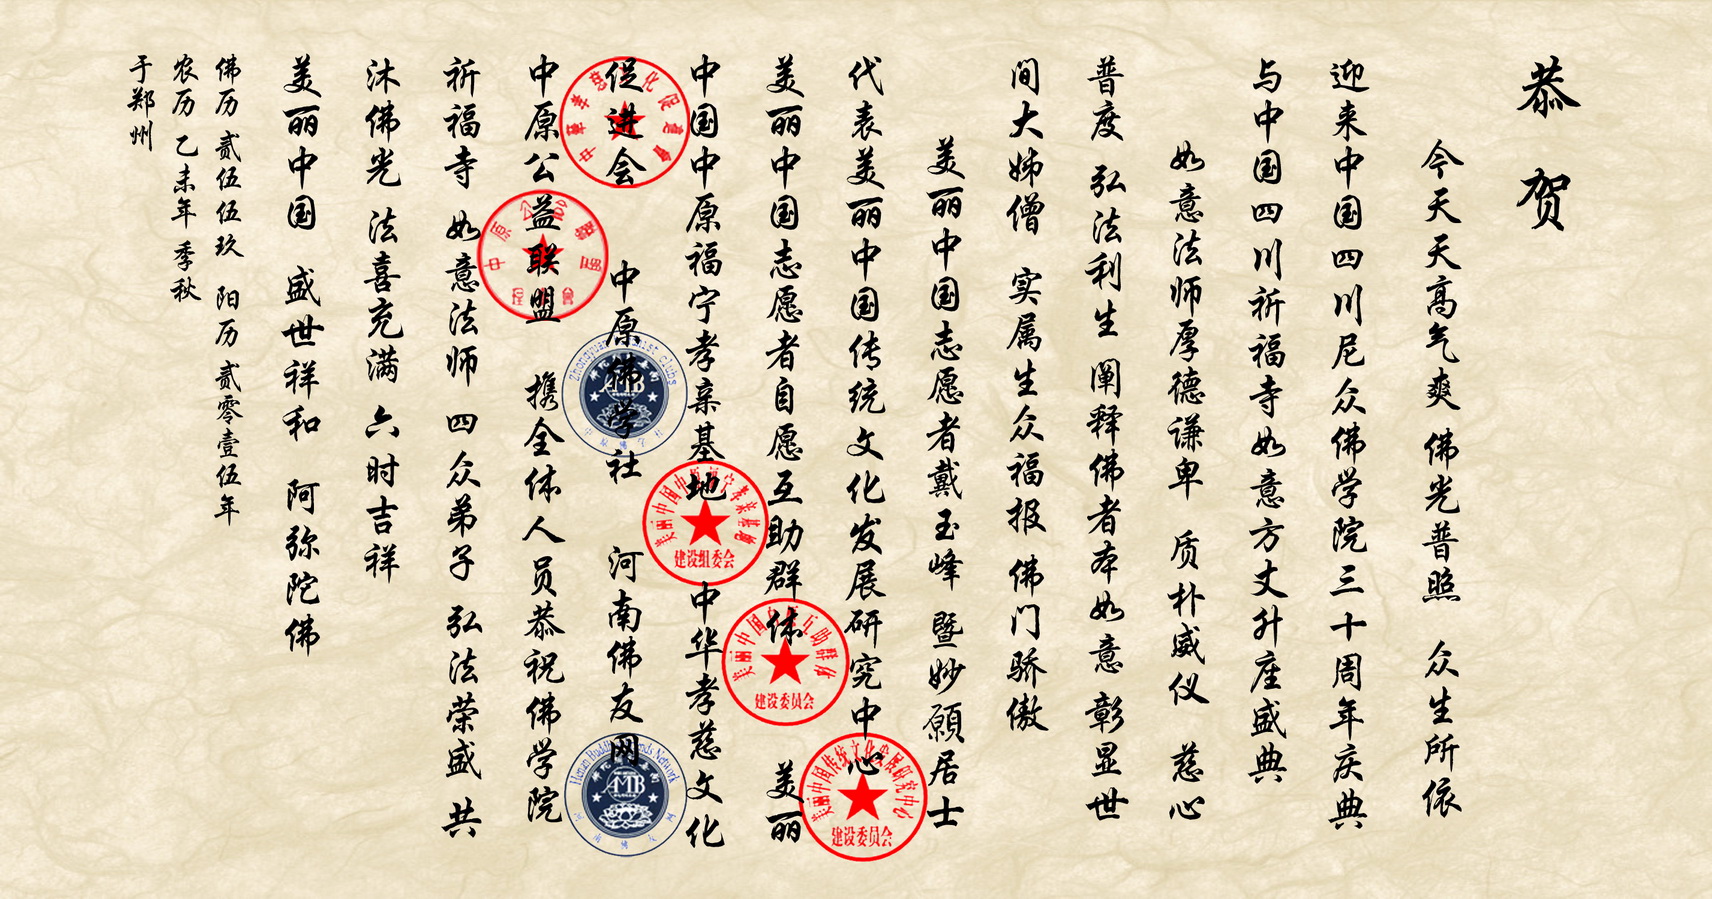 恭贺
今天天高气爽 佛光普照 众生所依
迎来中国四川尼众佛学院三十周年庆典
与中国四川祈福寺如意方丈升座盛典
如意法师厚德谦卑 质朴威仪 慈心
普度 弘法利生 阐释佛者本如意 彰显世
间大姊僧 实属生众福报 佛门骄傲
美丽中国志愿者戴玉峰 暨妙願居士
代表美丽中国传统文化发展研究中心
美丽中国志愿者自愿互助群体 美丽
中国中原福宁孝亲基地 中华孝慈文化
促进会 中原佛学社 河南佛友网
中原公益联盟 携全体人员恭祝佛学院
祈福寺 如意法师 四众弟子 弘法荣盛 共
沐佛光 法喜充满 六时吉祥
美丽中国 盛世祥和 阿弥陀佛
佛历 贰伍伍玖 阳历 贰零壹伍年
农历 乙未年 季秋
于郑州
建设组委会
美丽中国互助群体
建设委员会
美丽中国传统文化发展研究中心
建设委员会
AMB
Henan Buddhist Friends Network
AMB